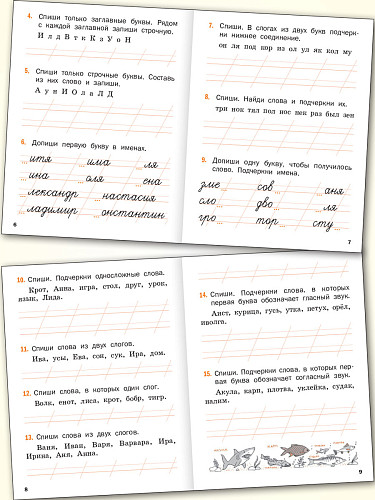 4. Спиши только заглавные буквы. Рядом
с каждой заглавной запиши строчную.
И л д В т к К з У о Н
5. Спиши только строчные буквы. Составь
из них слово и запиши.
А у н И О л а Л Д
6. Допиши первую букву в именах.
...итя ...има ...ля
...ина ...оля ...ена
...лександр ...настасия
...ладимир ...онстантин
6
7. Спиши. В слогах из двух букв подчерк-
ни нижнее соединение.
он ля под кор из ол ул як кол му
8. Спиши. Найди слова и подчеркни их.
три нок тил пол нос нек раз был зен
9. Допиши одну букву, чтобы получилось
слово. Подчеркни имена.
зме... сов... ...аня
сло... дво... ...ля
гро... тор... сту...
7
10. Спиши. Подчеркни односложные слова.
Крот, Анна, игра, стол, друг, урок,
язык, Лида.
11. Спиши слова из двух слогов.
Ива, усы, Ева, сон, сук, Ира, дом.
12. Спиши слова, в которых один слог.
Волк, енот, лиса, крот, бобр, тигр.
13. Спиши слова из двух слогов.
Ваня, Иван, Варя, Варвара, Ира,
Ирина, Аня, Анна.
8
14. Спиши. Подчеркни слова, в которых
первая буква обозначает гласный звук.
Аист, курица, гусь, утка, петух, орёл,
иволга.
15. Спиши. Подчеркни слова, в которых пер-
вая буква обозначает согласный звук.
Акула, карп, плотва, уклейка, судак,
налим.
9